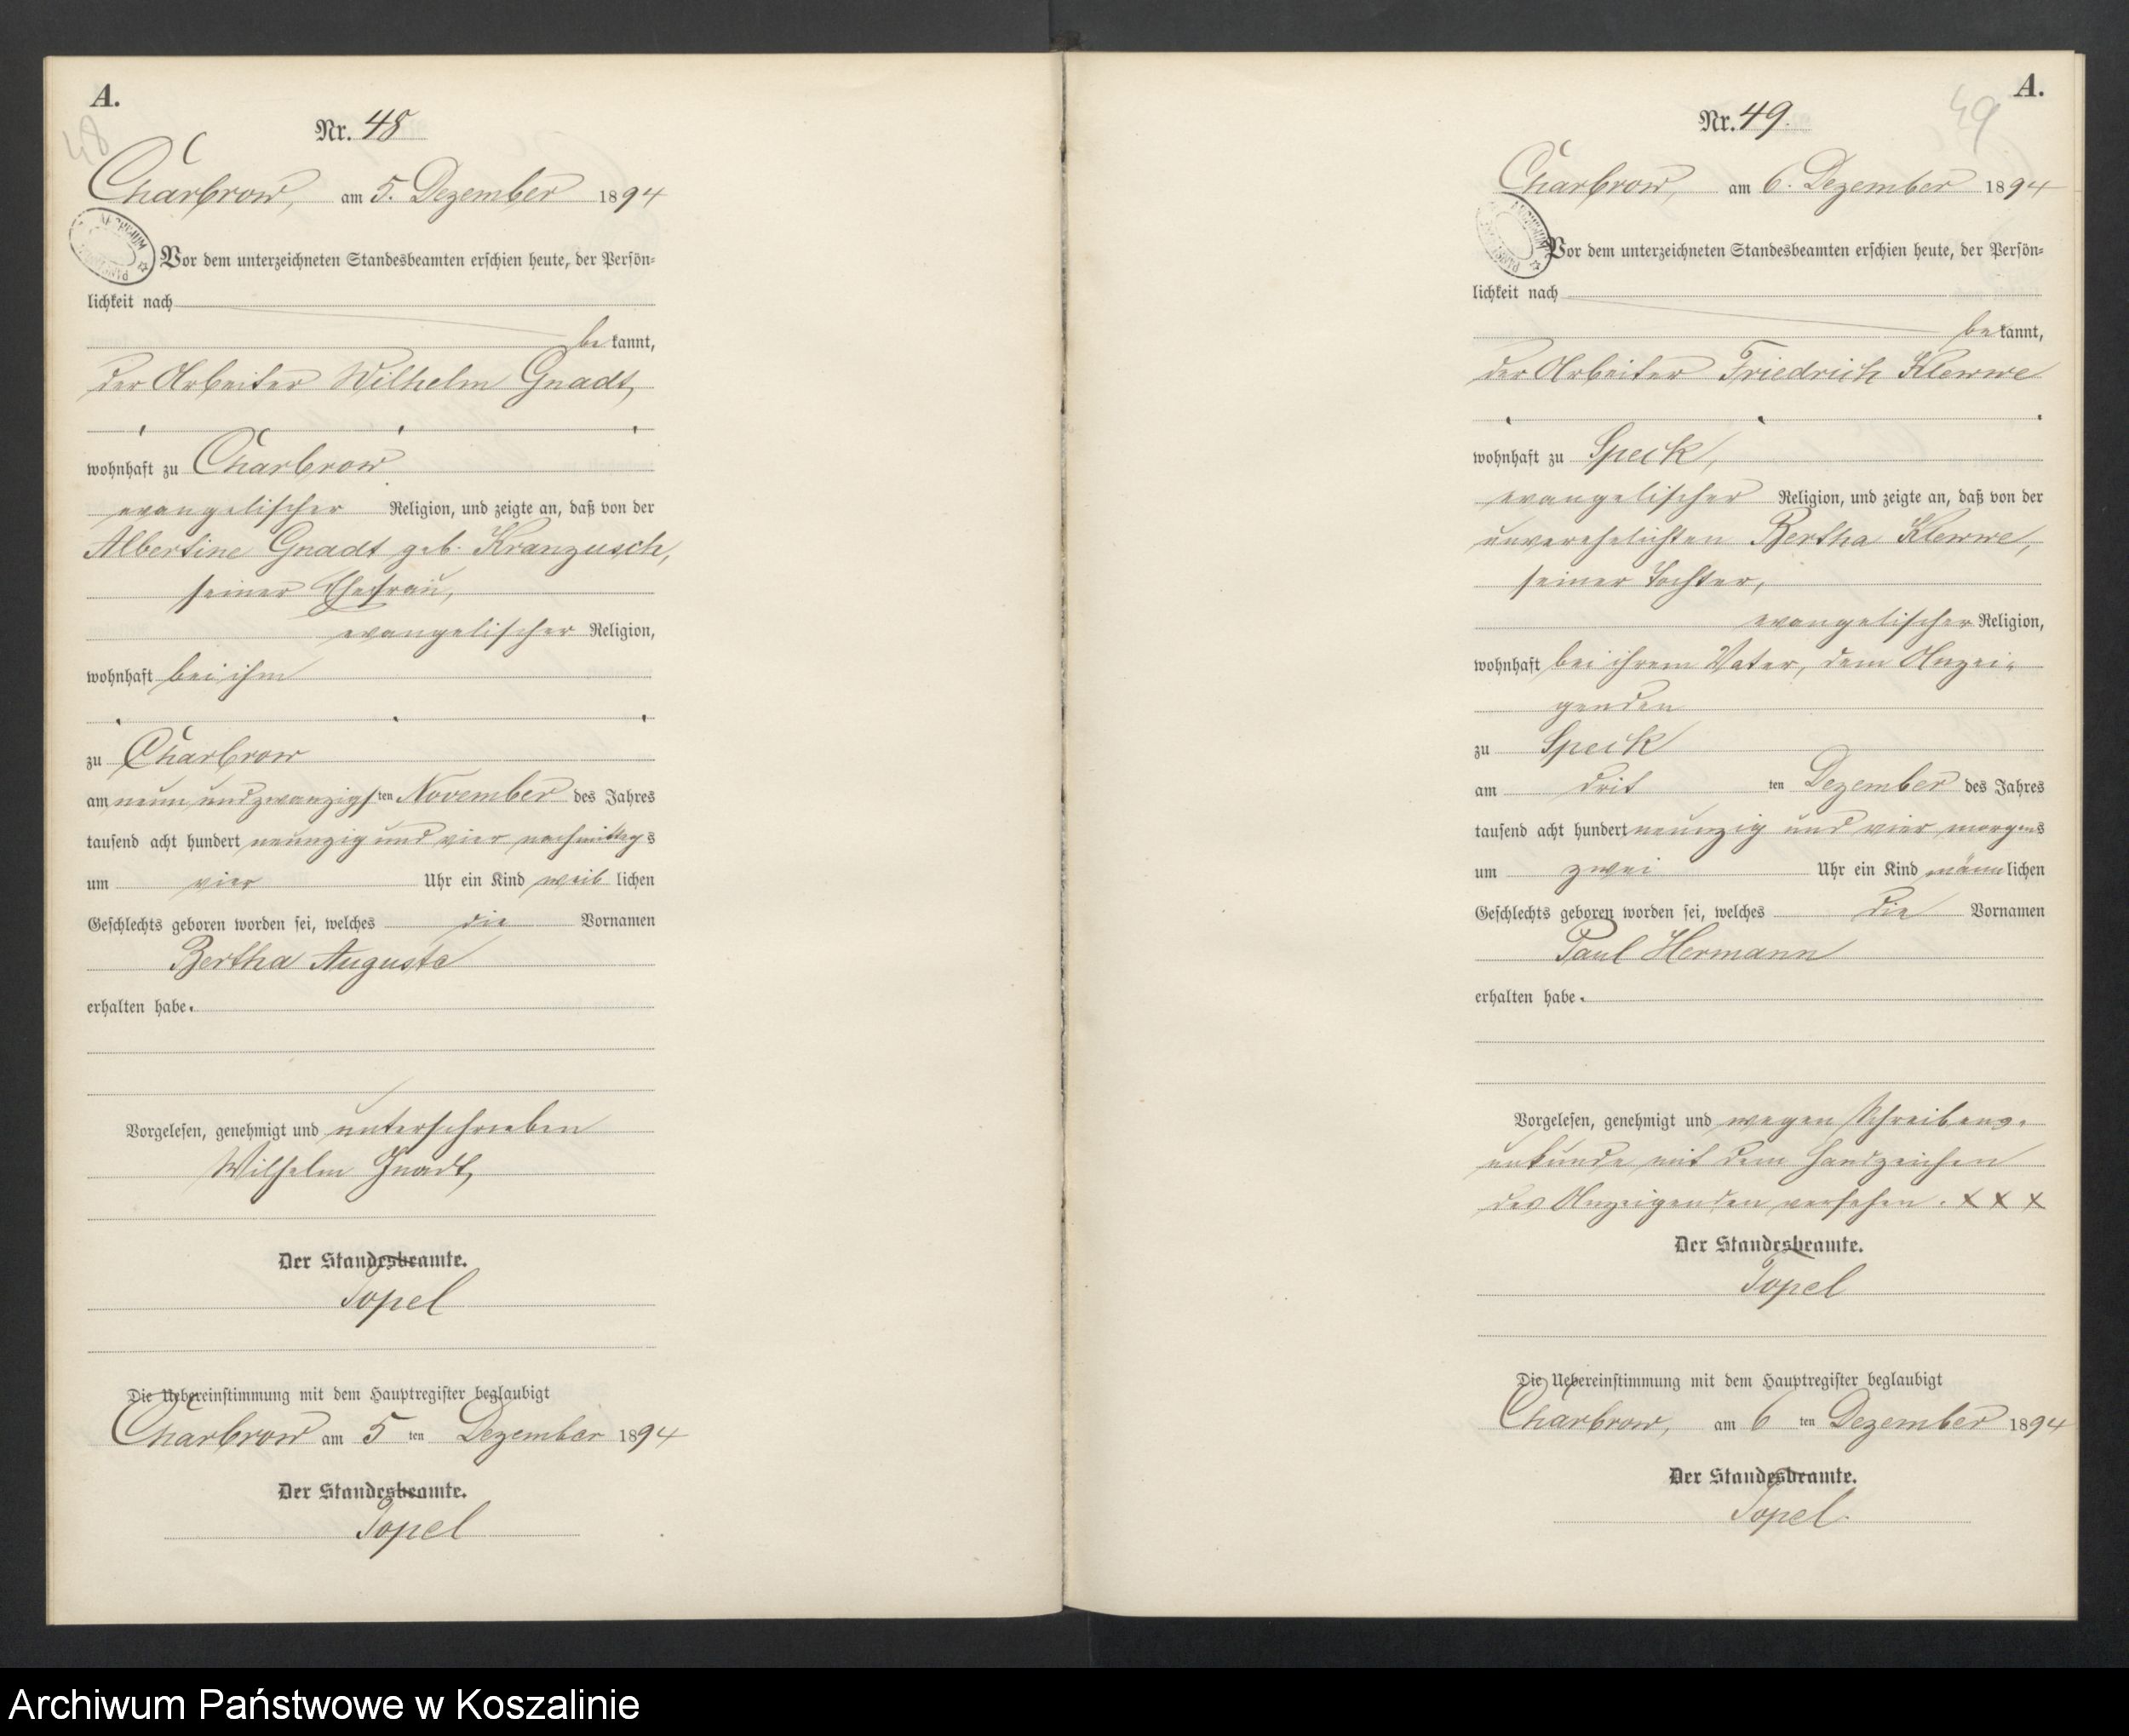 A.
48
Nr. 48
Charbrow, am 5. Dezember 1894
Vor dem unterzeichneten Standesbeamten erschien heute, der Persön-
lichkeit nach
be kannt,
der Arbeiter Wilhelm Gnadt,
wohnhaft zu Charbrow
evangelischer Religion, und zeigte an, daß von der
Albertine Gnadt geb. Kranzusch,
seiner Ehefrau,
evangelischer Religion,
wohnhaft bei ihm
zu Charbrow
am neun und zwanzigsten November des Jahres
tausend acht hundert neunzig und vier nachmittags
um vier Uhr ein Kind weib lichen
Geschlechts geboren worden sei, welches die Vornamen
Bertha Auguste
erhalten habe.
Vorgelesen, genehmigt und unterschrieben
Wilhelm Gnadt,
Der Standesbeamte.
Topel
Die Uebereinstimmung mit dem Hauptregister beglaubigt
Charbrow am 5 ten Dezember 1894
Der Standesbeamte.
Topel
A.
49
Nr. 49.
Charbrow, am 6. Dezember 1894
Vor dem unterzeichneten Standesbeamten erschien heute, der Persön-
lichkeit nach
be kannt,
der Arbeiter Friedrich Klewwe
wohnhaft zu Speck,
evangelischer Religion, und zeigte an, daß von der
unverehelichten Bertha Klewwe,
seiner Tochter,
evangelischer Religion,
wohnhaft bei ihrem Vater, dem Anzei-
genden
zu Speck
am drit ten Dezember des Jahres
tausend acht hundert neunzig und vier morgens
um zwei Uhr ein Kind männ lichen
Geschlechts geboren worden sei, welches die Vornamen
Paul Hermann
erhalten habe.
Vorgelesen, genehmigt und wegen Schreibens-
unkunde mit dem Handzeichen
des Anzeigenden versehen. X X X
Der Standesbeamte.
Topel
Die Uebereinstimmung mit dem Hauptregister beglaubigt
Charbrow, am 6 ten Dezember 1894
Der Standesbeamte.
Topel.
Archiwum Państwowe w Koszalinie